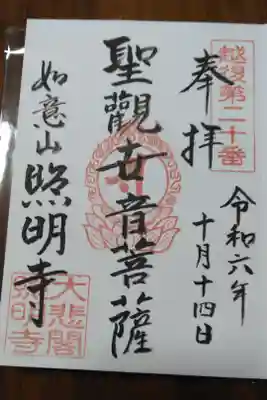 越後第二十番
奉拝
令和六年
十月十四日
聖觀世音菩薩
如意山
照明寺
大悲閣
照明寺